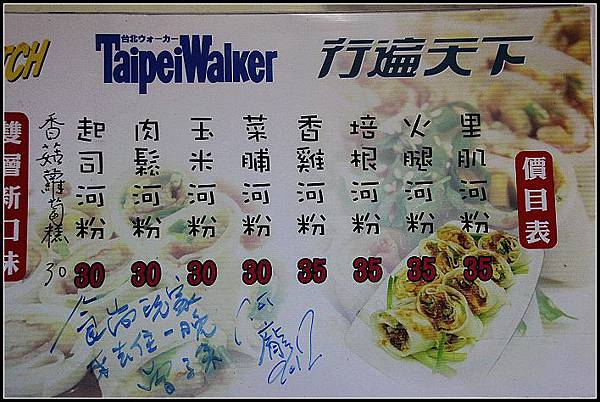 TCH
台北ウォーカー
TaipeiWalker
行遍天下
價目表
里肌河粉 35
火腿河粉 35
培根河粉 35
香雞河粉 35
菜脯河粉 30
玉米河粉 30
肉鬆河粉 30
起司河粉 30
香菇蘿蔔糕 30
雙層新口味
食尚玩家
來去住一晚